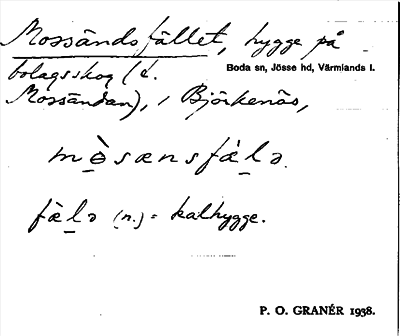 Mossändsfället, hygge på
bolagsskog (i
Boda sn, Jösse hd, Värmlands l.
Mossändan), i Björkenäs,
mòsænsfálə
fælə (n.) = kalhygge.
P. O. GRANÉR 1938.